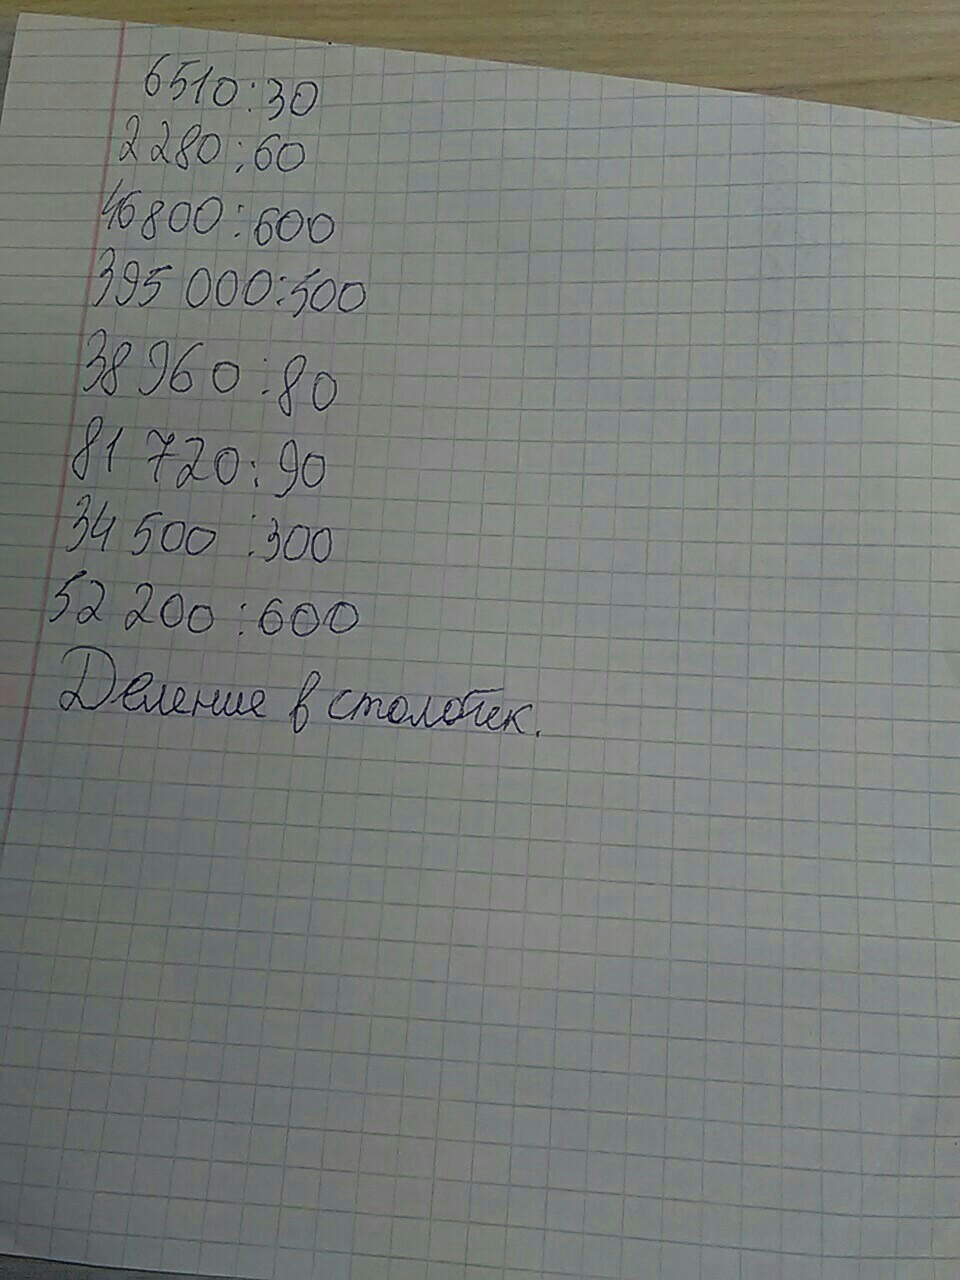 6510:30
2280:60
46800:600
395 000:500
38 960:80
81 720:90
34 500:300
52 200:600
Деление в столбик.